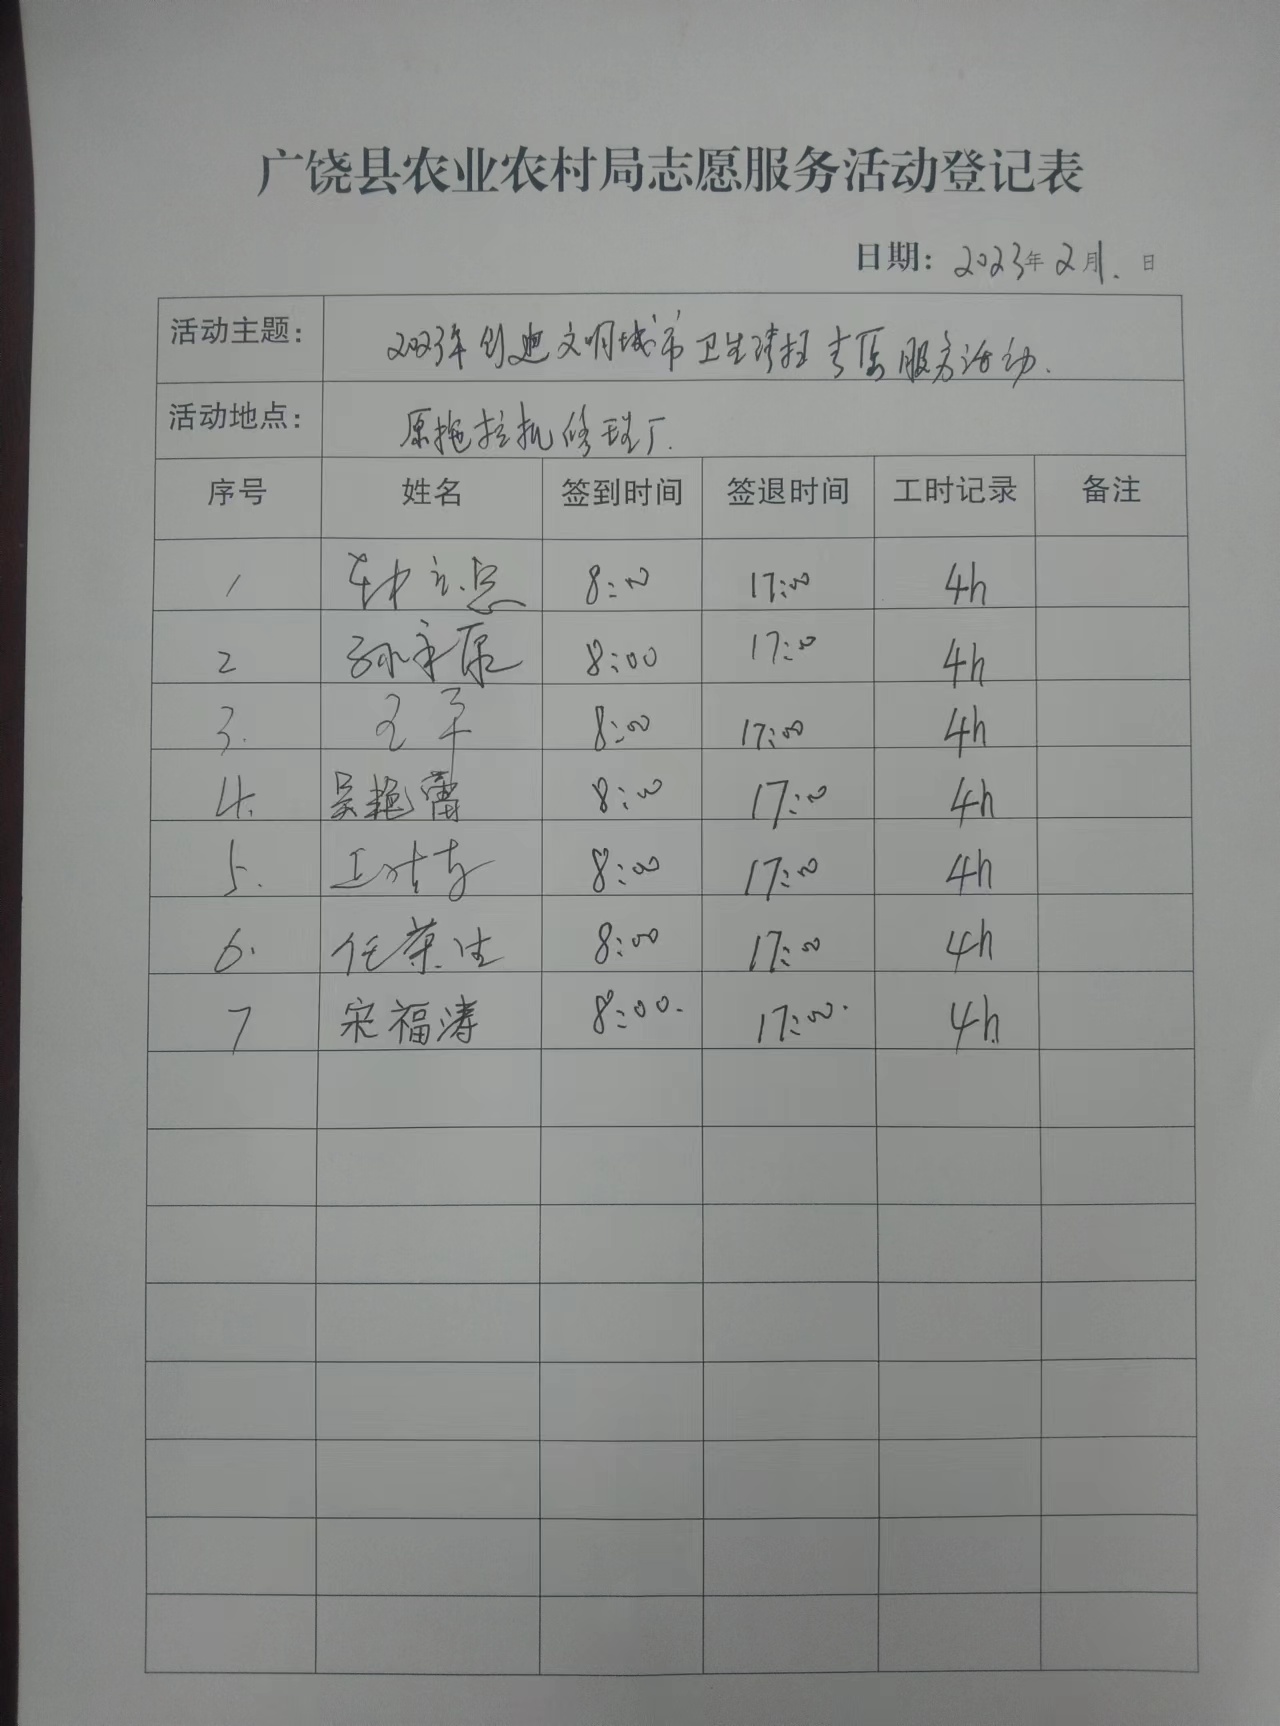 广饶县农业农村局志愿服务活动登记表
日期: 2023年2月1.日
活动主题: 2023年创建文明城市卫生清扫志愿服务活动.
活动地点: 原拖拉机修理厂.
序号 姓名 签到时间 签退时间 工时记录 备注
1 8:00 17:00 4h
2 孙永康 8:00 17:00 4h
3. 王平 8:00 17:00 4h
4. 吴艳蕾 8:00 17:00 4h
5. 8:00 17:00 4h
6. 任荣生 8:00 17:00 4h
7 宋福涛 8:00. 17:00. 4h.